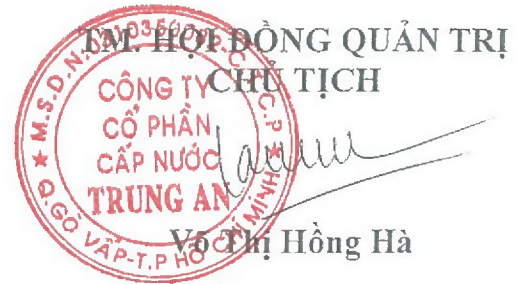 TM. HỘI ĐỒNG QUẢN TRỊ
CHỦ TỊCH
CÔNG TY
CỔ PHẦN
CẤP NƯỚC
TRUNG AN
★ Q.GÒ VẤP-T.P HỒ CHÍ MINH ★
Võ Thị Hồng Hà